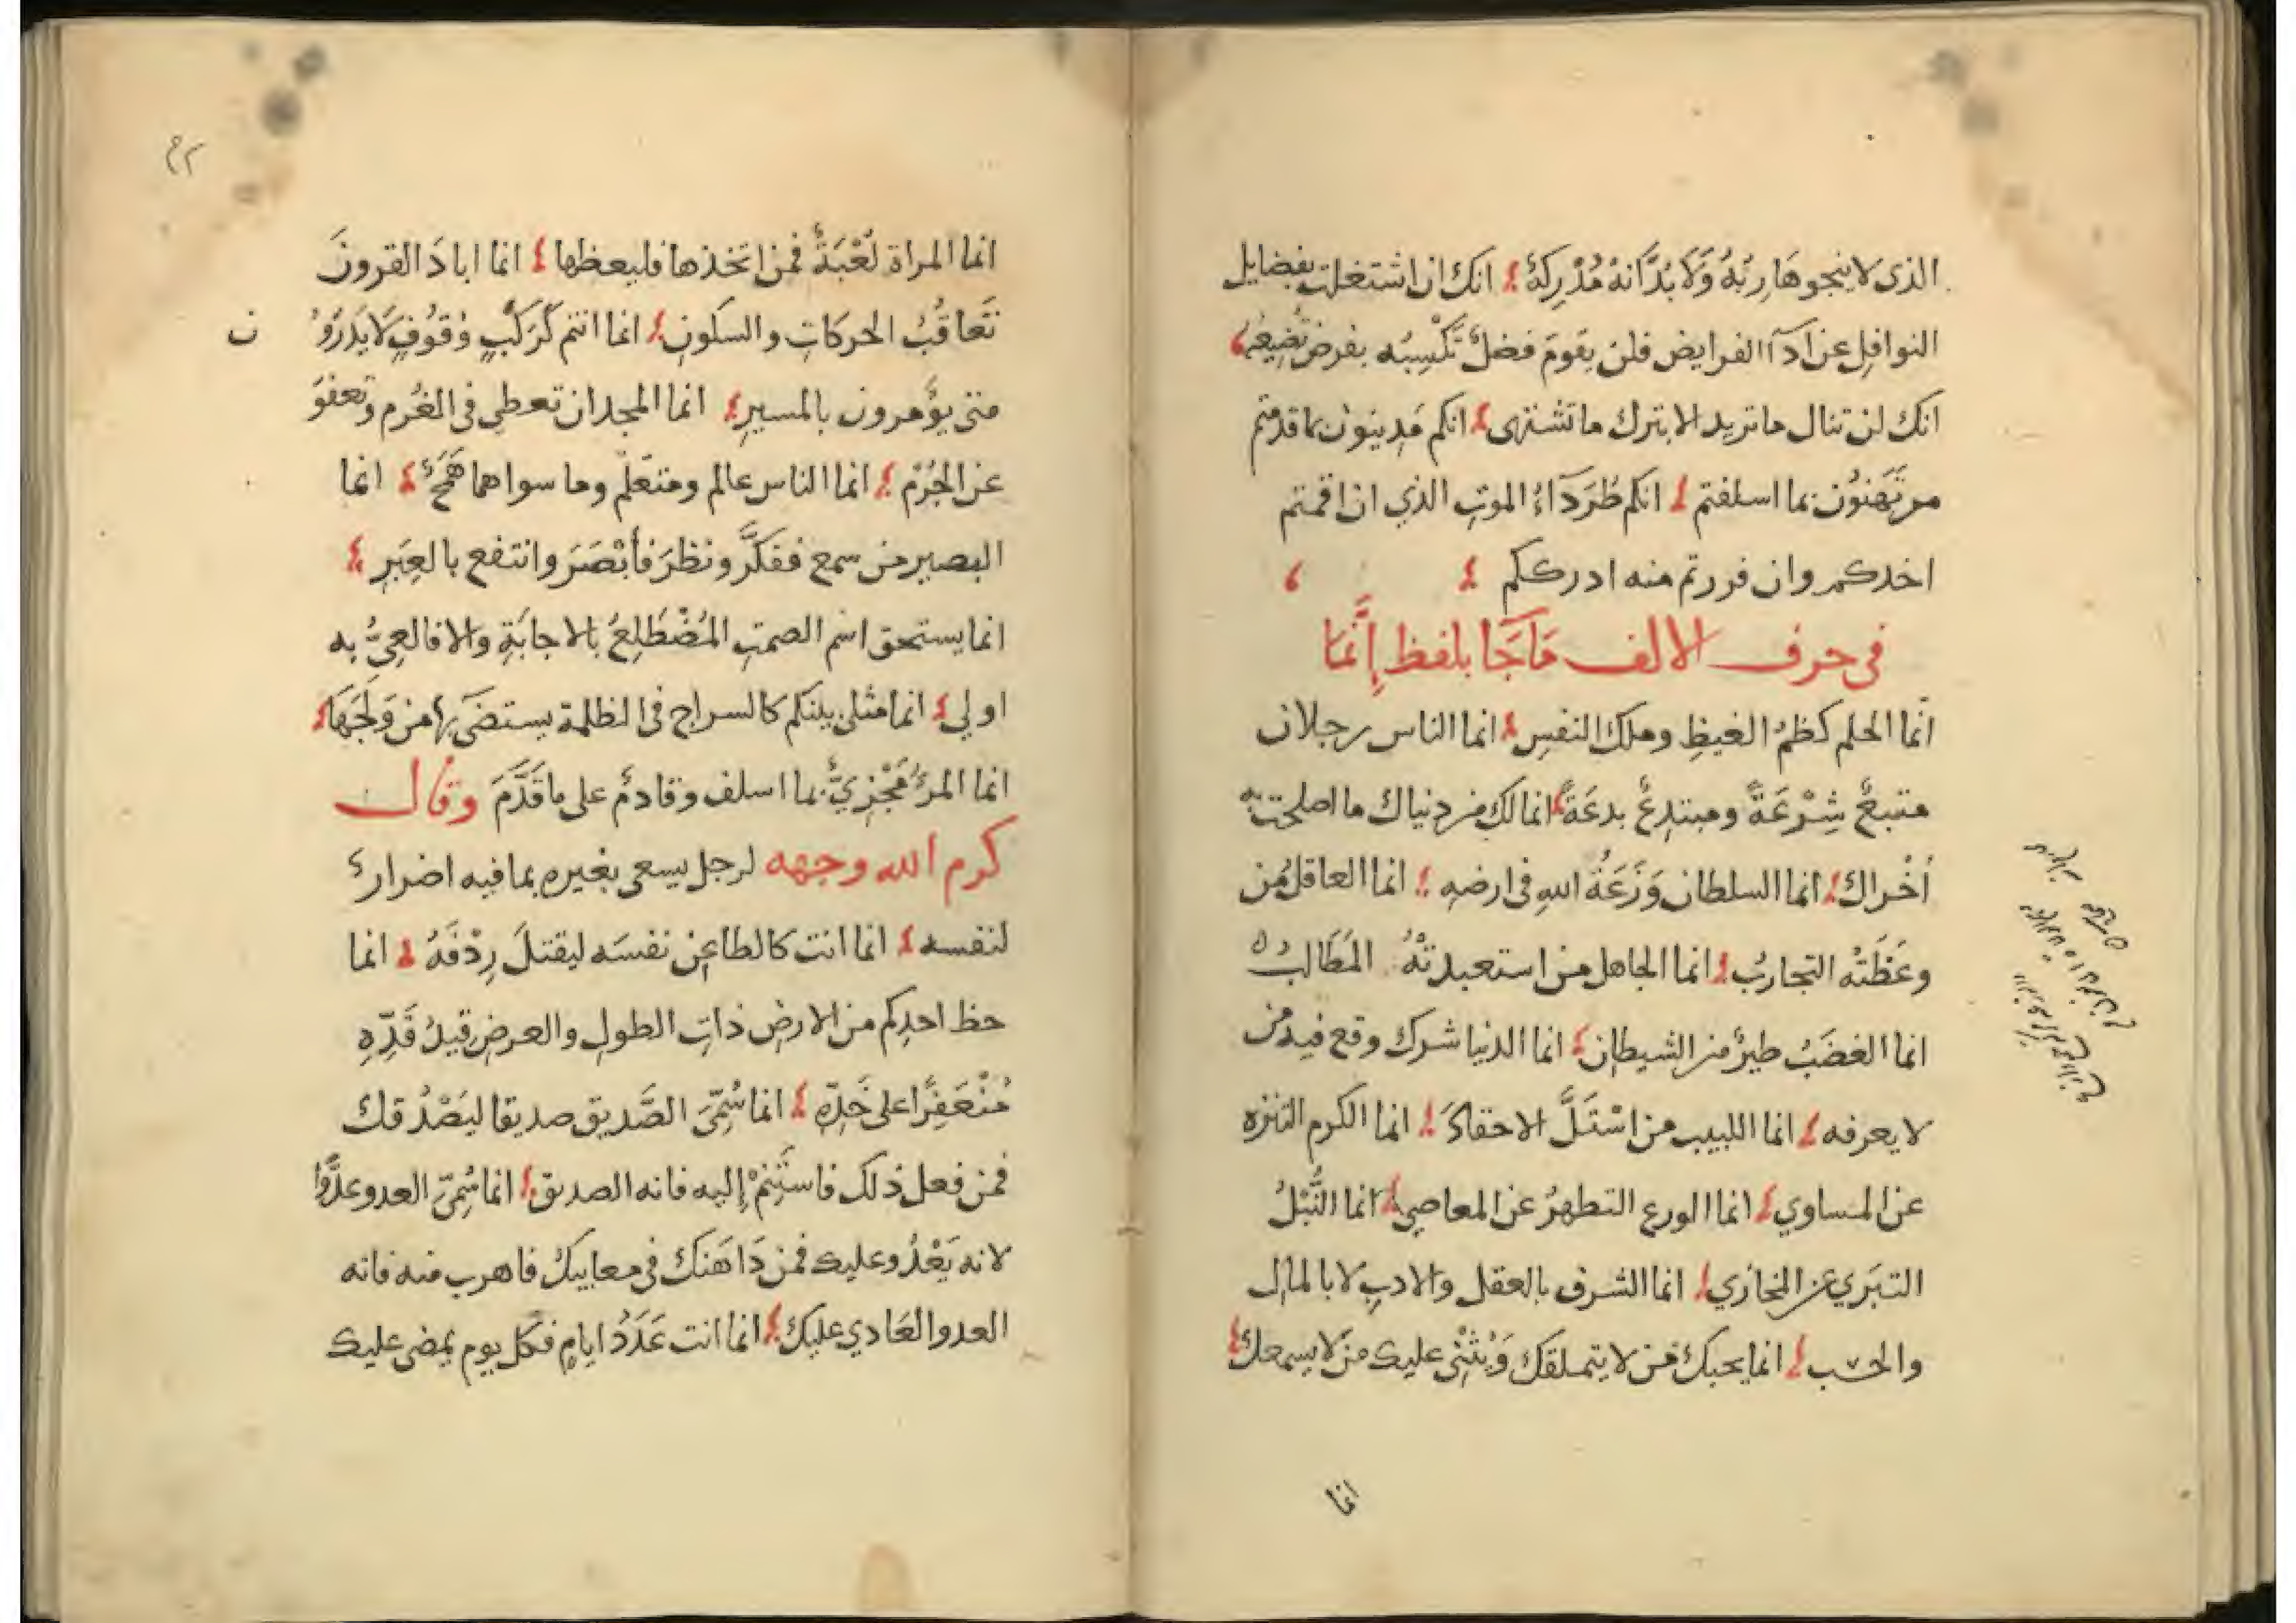 الذى لا ينجو هَارِبُهُ وَلَا بُدَّ انهُ مُدْرِكَهُ انك ان اشتغلت بفضايل
النوافِلِ عن ادآ الفرايض فلن يقومَ فضلٌ تَكْسِبُه بفرض تُضيعُه
انك لن تنال ما تريد الا بترك ما تشتهى انكم مَدِينوُن بما قدمتم
مرتَهَنوُن بما اسلفتم انكم طُرَدَآءُ الموتِ الذي ان اقمتم
اخدكم وان فررتم منه ادرككم
فى حرف الالف مَا جَا بلفظ إِنَّمَا
انّما الحلم كظمُ الغيظِ وملك النفسِ انما الناس رجلان
متبعٌ شِرْعَةً ومبتدِعٌ بدعَةً انما لك من دنياك ما اصلحت به
اُخْراك انما السلطان وَزَعَةُ اللهِ فى ارضهِ انما العاقل مَن
وعَظَتْه التجاربُ انما الجاهل من استعبدتْهُ المَطَالبُ
انما الغضَبُ طيرٌ من الشيطانِ انما الدنيا شرك وقع فيه من
لا يعرفه انما اللبيب من اسْتَلَّ الاحقادَ انما الكرم التنزه
عن المساوي انما الورع التطهرُ عن المعاصي انما النُّبْلُ
التبَري عن المخازي انما الشرف بالعقل والادبِ لا بالمالِ
والحسب انما يحبك مَن لا يتملقكَ وَيُثنْىِ عليك من لا يسمعك
انما
انما المراة لُعْبَةٌ فمن اتخذها فليعظها انما ابادَ القرونَ
تَعاقُبُ الحركاتِ والسكونِ انما انتم كَرَكْبٍ وُقوُفٍ لَا يَدرَوُ ن
متى يؤمرون بالمسيرِ انما المجد ان تعطى فى الغُرم وتعفوَ
عن الجُرْمِ انما الناس عالم ومتعَلم وما سواهما هَمَجٌ انما
البصير من سمع ففكَّرَ ونظرَ فأبْصَرَ وانتفع بالعِبَرِ
انما يستحق اسم الصمتِ المُضْطَلِعُ بالاجابَةِ والا فالعِيُّ به
اولي انما مثلى بينكم كالسراج فى الظلمة يستضَيُ بها من وَلَجَهَا
انما المرءُ مَجْزِيٌّ بما اسلف وقادمٌ على ما قَدَّمَ وقال
كرم الله وجهه لرجل يسعى بغيره بما فيه اضرارٌ
لنفسه انما انت كالطاعِن نفسَه ليقتلَ رِدْفَهُ انما
حظ احدِكم من الارضِ ذاتِ الطولِ والعرضِ قيدُ قَدِّهِ
مُنْعَفِرًا على خَدِّهِ انما سُمِّىَ الصَّديق صديقا ليَصْدُ قك
فمن فعل ذلك فاستَنِمْ إليه فانه الصديق انما سُمِّىَ العدو عدُوًّا
لانه يَعْدُو عليك فمن دَاهَنَك فى معايبك فاهرب منه فانه
العدو العَادي عليك انما انت عَدَدُ ايامٍ فكل يوم يمضى عليك